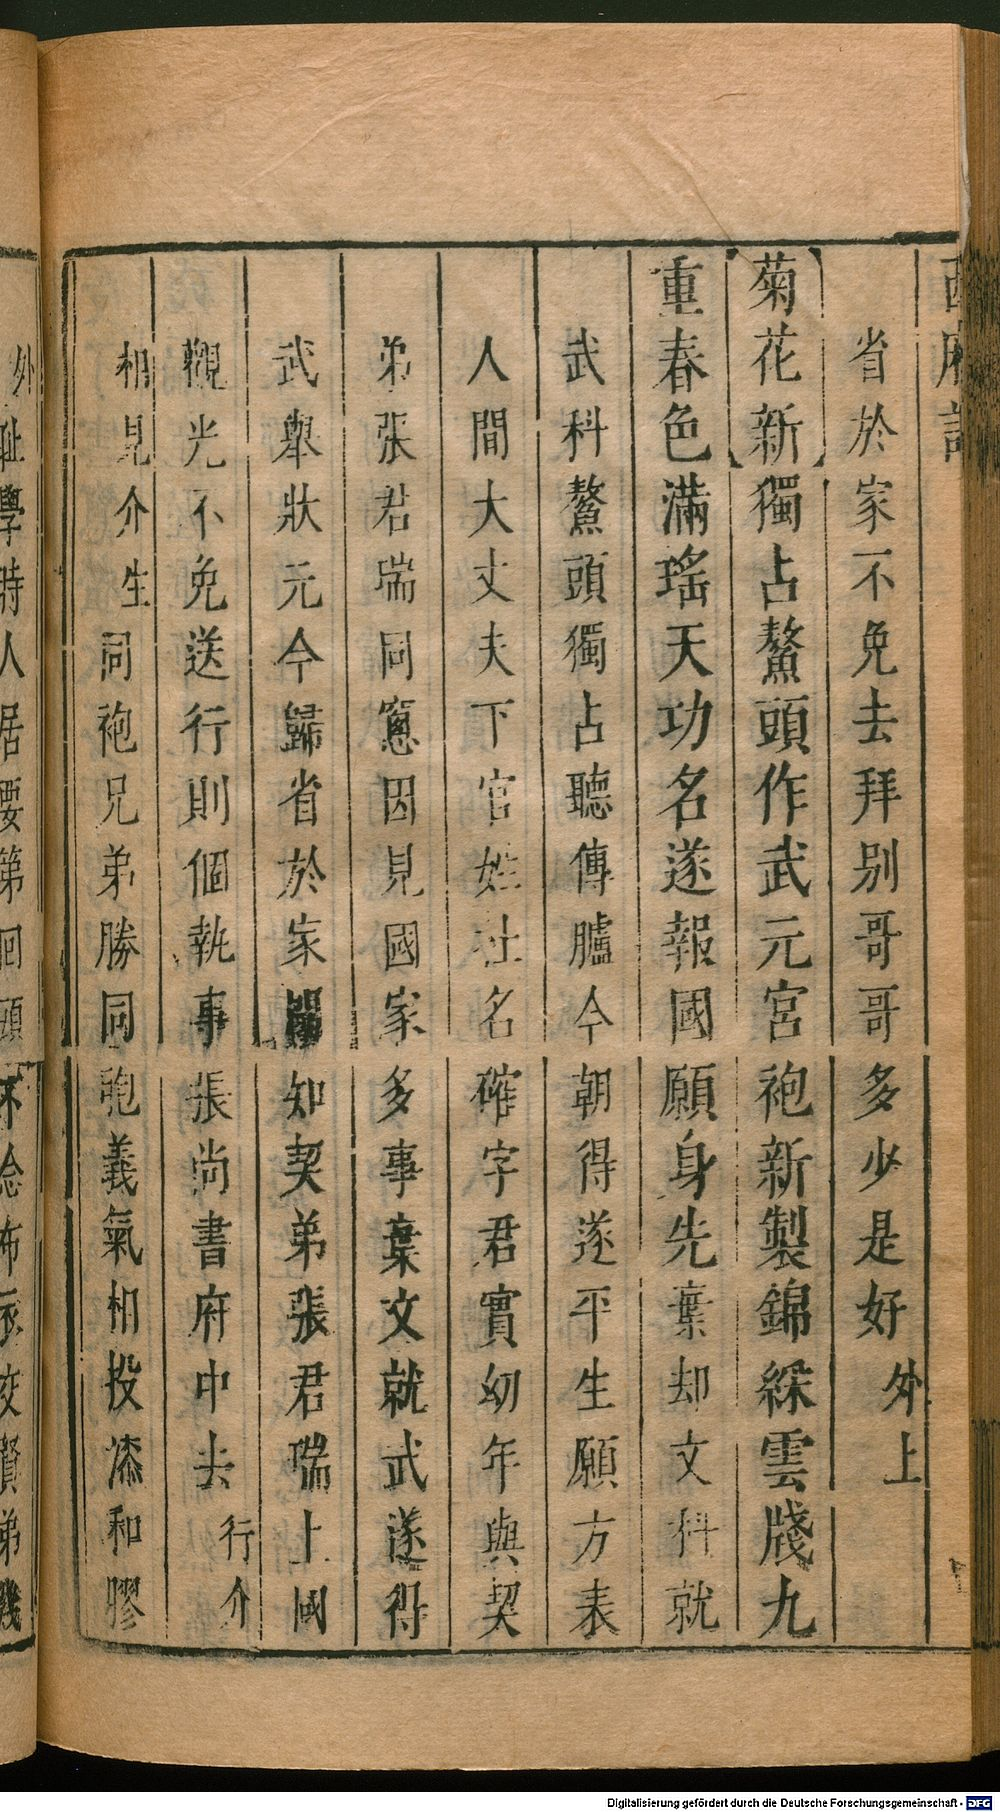 西府記
省於家不免去拜别哥哥多少是好外上
菊花新獨占鰲頭作武元宮袍新製錦綵雲牋九
重春色滿瑤天功名遂報國願身先棄却文科就
武科鰲頭獨占聽傳臚今朝得遂平生願方表
人間大丈夫下官姓杜名確字君實幼年與契
弟張君瑞同窻因見國家多事棄文就武遂得
武舉狀元今歸省於家聞知契弟張君瑞上國
觀光不免送行則個執事張尚書府中去行介
相見介生同袍兄弟勝同胞義氣相投漆和膠
外耻學時人居要第回頭不念布衣交賢弟幾
Digitalisierung gefördert durch die Deutsche Forschungsgemeinschaft - DFG